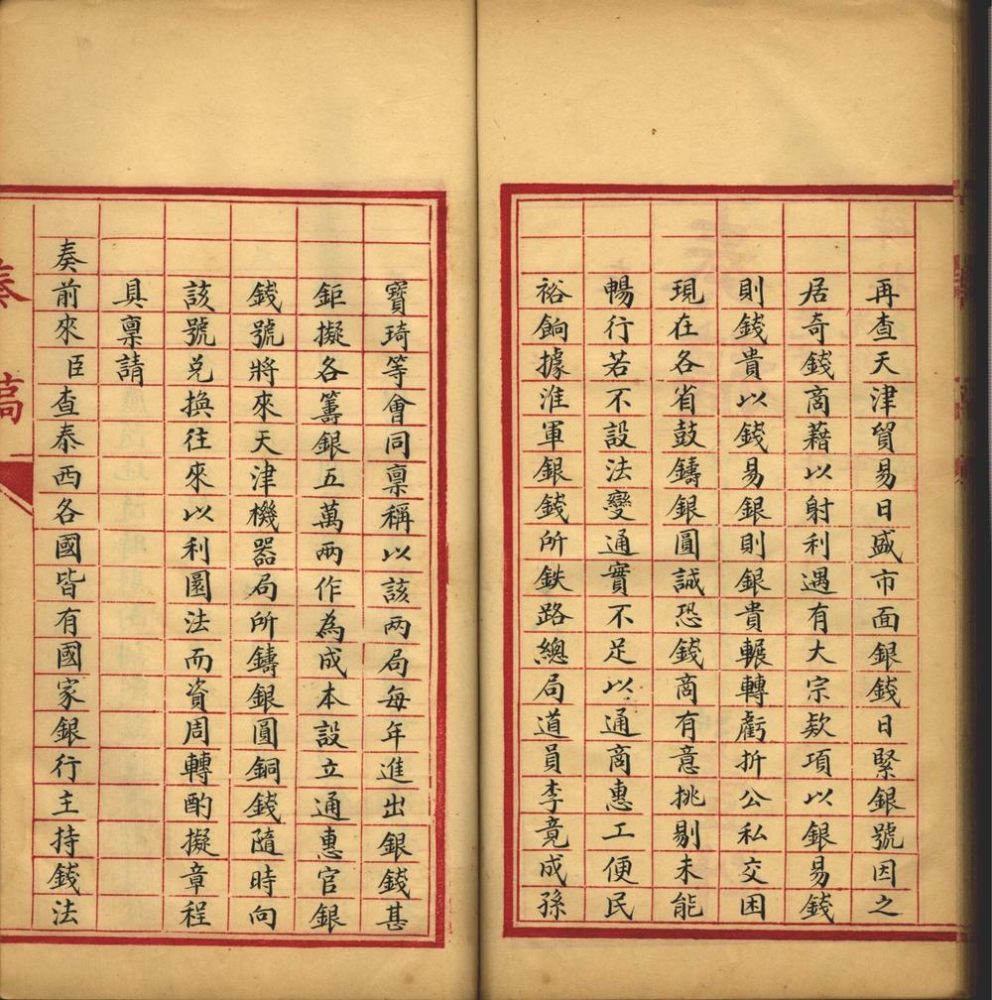 再查天津貿易日盛市面銀錢日緊銀號因之
居奇錢商藉以射利遇有大宗欵項以銀易錢
則錢貴以錢易銀則銀貴輾轉虧折公私交困
現在各省鼓鑄銀圓誠恐錢商有意挑剔未能
暢行若不設法變通實不足以通商惠工便民
裕餉據淮軍銀錢所鉄路總局道員李竟成孫
寳琦等會同禀稱以該两局每年進出銀錢甚
鉅擬各籌銀五萬两作為成本設立通惠官銀
錢號將來天津機器局所鑄銀圓銅錢隨時向
該號兑換往來以利圜法而資周轉酌擬章程
具禀請
奏前來臣查泰西各國皆有國家銀行主持錢法
奏稿